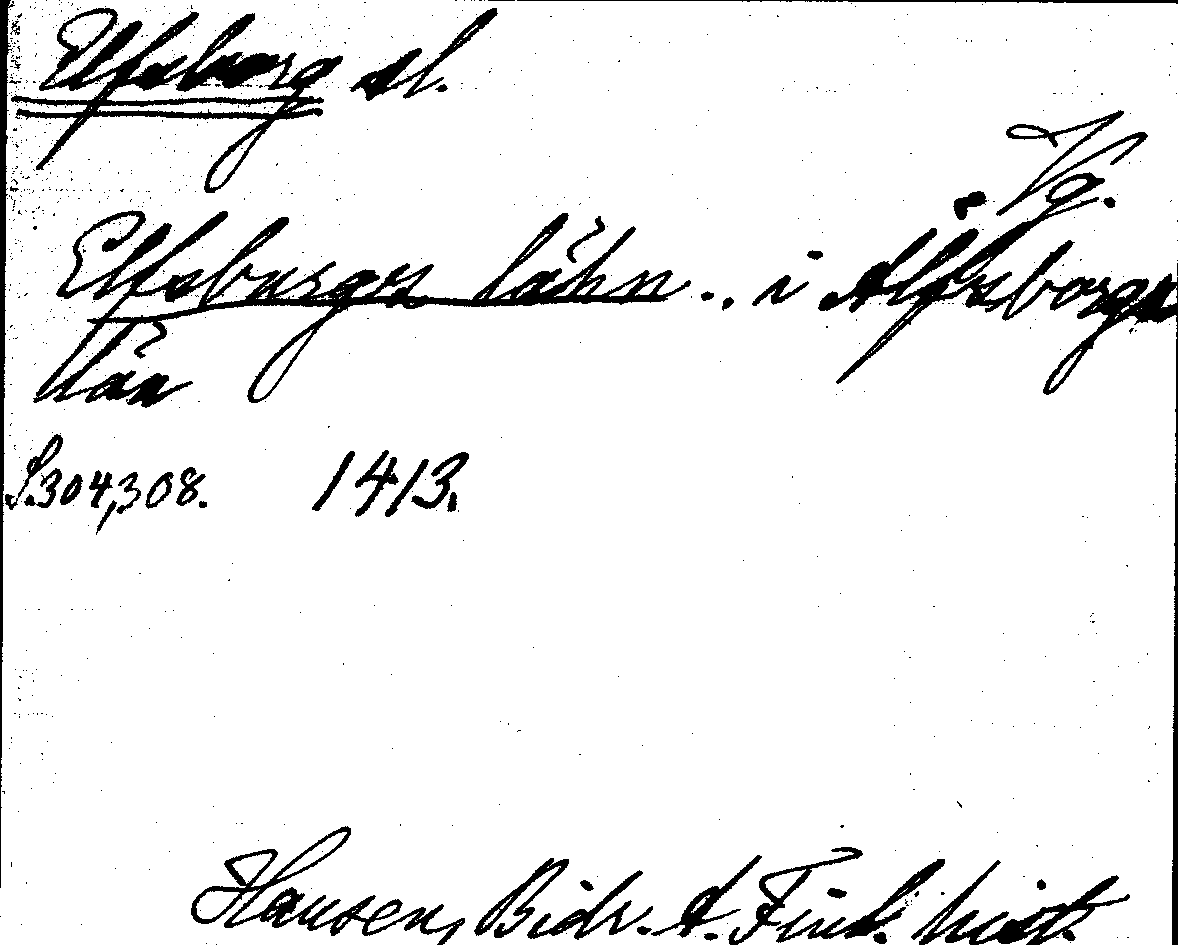 Elfsborg sl.
Vg.
Elfsburgs lähn .. i Älfsborgs
län
S.304,308. 1413.
Hausen, Bidr. t. Finl. hist.